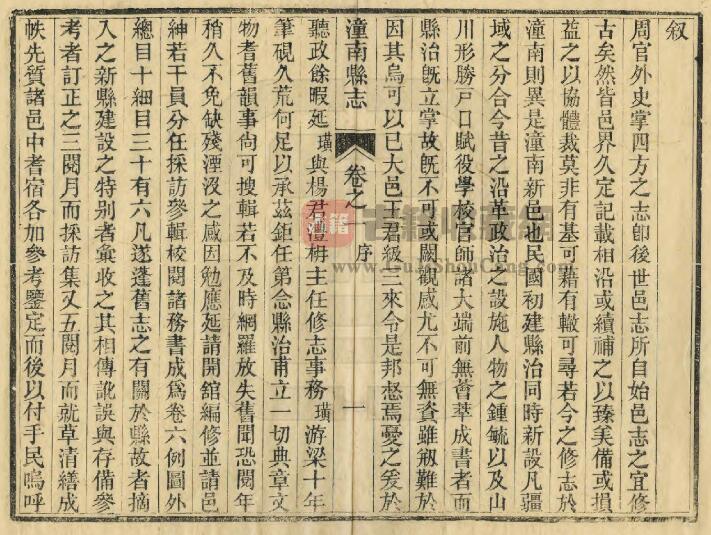 叙
周官外史掌四方之志卽後世邑志所自始邑志之宜修
古矣然皆邑界久定記載相沿或續補之以臻美備或損
益之以協體裁莫非有基可藉有轍可尋若今之修志於
潼南則異是潼南新邑也民國初建縣治同時新設凡疆
域之分合今昔之沿革政治之設施人物之鍾毓以及山
川形勝戸口賦役學校官師諸大端前無薈萃成書者而
縣治旣立掌故旣不可或闕觀感尤不可無資雖剏難於
因其烏可以已大邑王君級三來令是邦惄焉憂之爰於
潼南縣志
卷之
序
一
聽政餘暇延璜與楊君澧枬主任修志事務璜游梁十年
筆硯久荒何足以承茲鉅任第念縣治甫立一切典章文
物耆舊韻事尙可搜輯若不及時網羅放失舊聞恐閱年
稍久不免缺殘湮沒之感因勉應延請開舘編修並請邑
紳若干員分任採訪參輯校閱諸務書成爲卷六例圖外
總目十細目三十有六凡遂蓬舊志之有關於縣故者摘
入之新縣建設之特别者彙收之其相傳訛誤與存備參
考者訂正之三閱月而採訪集又五閱月而就草清繕成
帙先質諸邑中耆宿各加參考鑒定而後以付手民嗚呼
古籍
www.GuJiShuCang.com